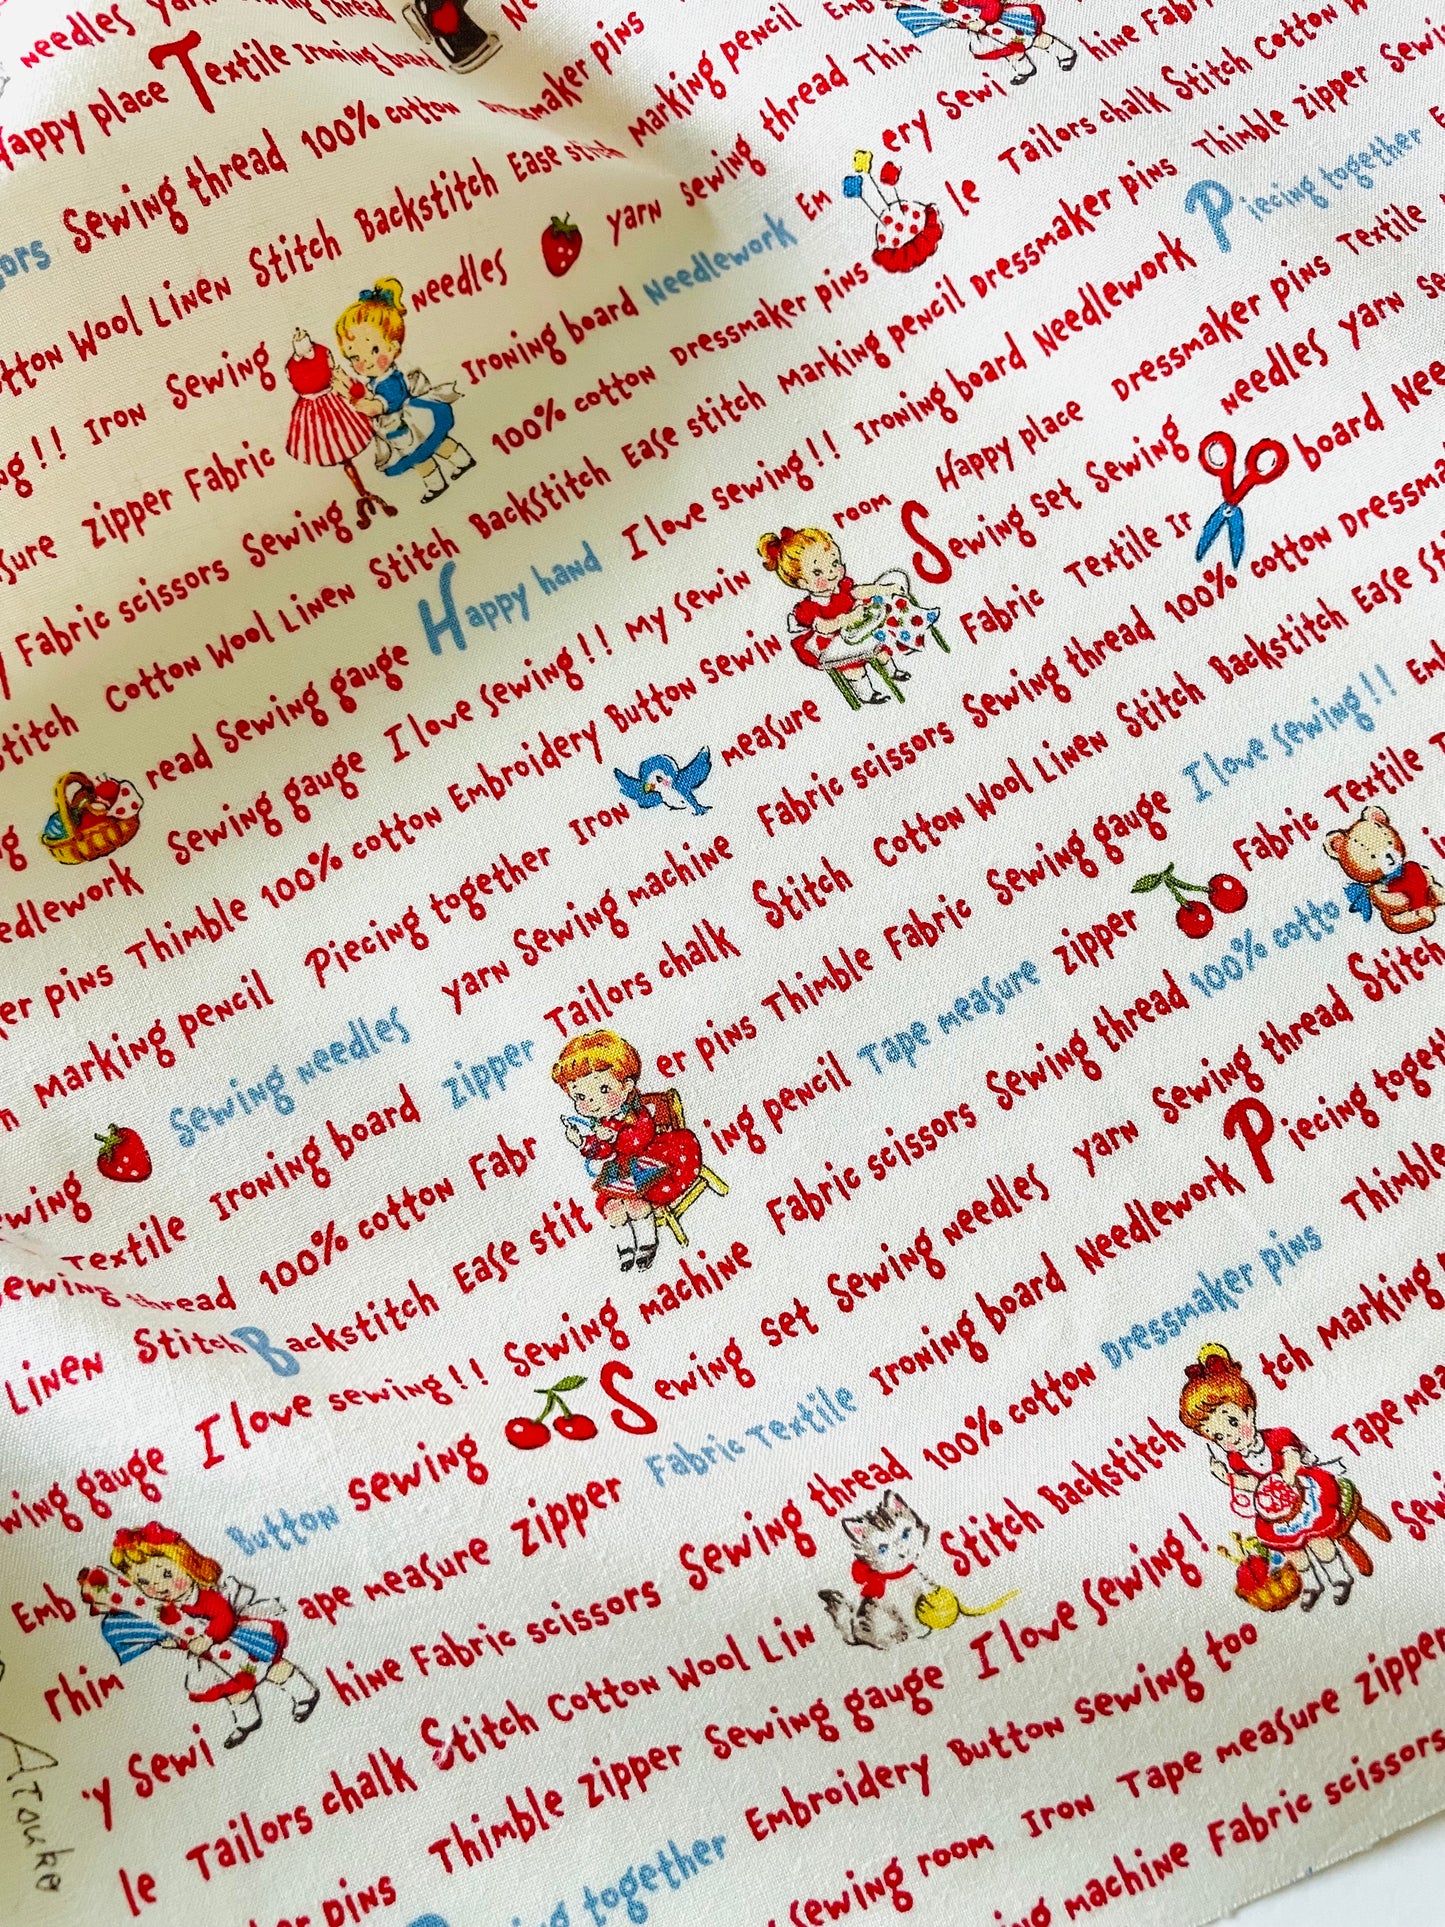 needles yarn sewing thread
Happy place Textile Ironing board
Sewing thread 100% cotton Dressmaker pins Marking pencil Emb
Cotton Wool Linen Stitch Backstitch Ease stitch
Iron Sewing needles yarn sewing thread Thim hine Fabri
zipper Fabric Ironing board Needlework Em ery Sewi
Fabric scissors Sewing 100% cotton Dressmaker pins le Tailors chalk Stitch Cotton W
Stitch Cotton Wool Linen Stitch Backstitch Ease stitch Marking pencil Dressmaker pins Thimble zipper Sewi
read Sewing gauge Happy hand I love sewing!! Ironing board Needlework Piecing together
Needlework Sewing gauge I love sewing!! My sewin room Happy place Dressmaker pins Textile
er pins Thimble 100% cotton Embroidery Button sewin Sewing set Sewing needles yarn se
Marking pencil Piecing together Iron measure Fabric Textile Ir board Nee
Sewing needles yarn Sewing machine Fabric scissors Sewing thread 100% cotton Dressma
ewing Textile Ironing board zipper Tailors chalk Stitch Cotton Wool Linen Stitch Backstitch Ease St
Sewing thread 100% cotton Fabr er pins Thimble Fabric Sewing gauge I love sewing!! Emb
Linen Stitch Backstitch Ease stit ing pencil Tape measure zipper Fabric Textile
wing gauge I love sewing!! Sewing machine Fabric scissors Sewing thread 100% cotto
Button sewing Sewing set Sewing needles yarn Sewing thread Stitch
Emb ape measure zipper Fabric Textile Ironing board Needlework Piecing togeth
Thim hine Fabric scissors Sewing thread 100% cotton Dressmaker pins Thimble
y Sewi Stitch Cotton Wool Lin Stitch Backstitch tch Marking
le Tailors chalk Thimble zipper Sewing gauge I love sewing! Tape mea
pins together Embroidery Button sewing too Sewi
sewing room Iron Tape measure zipper
machine Fabric scissors
Atsuko